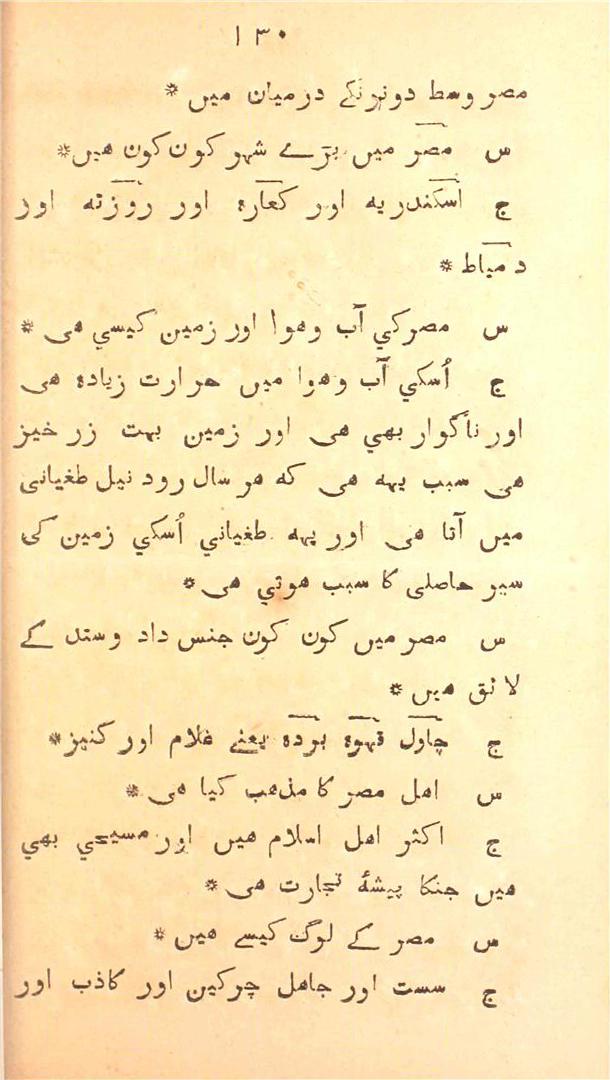 ۱۳۰
مصر وسط دونونکے درمیان میں *
س مصر میں بڑے شہر کون کون ہیں *
ج اسکندریه اور کعارہ اور روزته اور
دمیاط *
س مصرکي آب وهوا اور زمین کیسي هی *
ج اُسکي آب وهوا میں حرارت زیادہ هی
اور ناگوار بهي هی اور زمین بہت زر خیز
هی سبب یهه هی که هر سال رود نیل طغیانی
میں آتا هی اور یهه طغیاني اُسکي زمین کی
سیر حاصلی کا سبب هوتي هی *
س مصر میں کون کون جنس داد وستد کے
لائق هیں *
ج چاول قهوہ بردہ یعنے غلام اور کنیز *
س اهل مصر کا مذهب کیا هی *
ج اکثر اهل اسلام هیں اور مسیحي بهي
هیں جنکا پیشۂ تجارت هی *
س مصر کے لوگ کیسے هیں *
ج سست اور جاهل چرکین اور کاذب اور